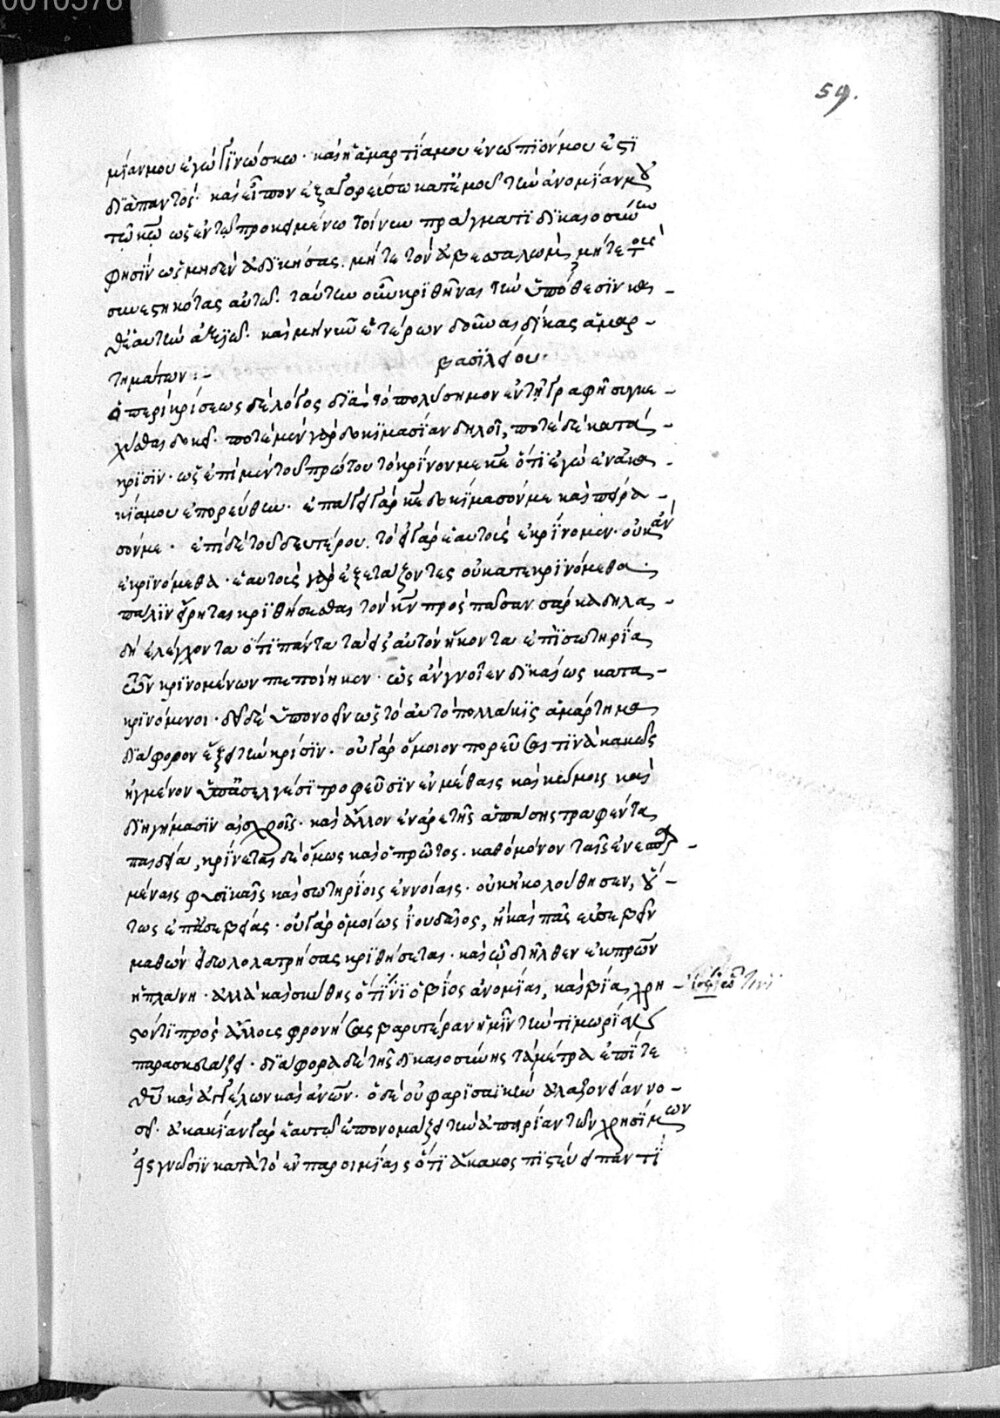 0010576
59.
μίαν μου ἐγὼ γινώσκω· καὶ ἡ ἁμαρτία μου ἐνώπιόν μου ἐστὶ
διαπαντός· καὶ εἶπον ἐξαγορεύσω κατ' ἐμοῦ τὴν ἀνομίαν μου
τῷ κῶ ὡς ἐν τῷ προκειμένω τοίνυν πράγματι δικαιοσύνην
φησὶν ὡς μηδὲν ἀδικήσας· μήτε τὸν ἀβεσαλὼμ, μήτε τοὺς
συνεστηκότας αὐτῷ· ταύτην οὖν κριθῆναι τὴν ὑπόθεσιν
καὶ μὴ νῦν ἑτέρων δοῦναι δίκας ἁμαρ-
τημάτων:-
βασιλείου·
ὁ περὶ κρίσεως δὲ λόγος διὰ τὸ πολύσημον ἐν τῇ γραφῇ συγκε-
χύσθαι δοκεῖ· ποτὲ μὲν γὰρ δοκιμασίαν δηλοῖ, ποτὲ δὲ κατά-
κρισιν· ὡς ἐπὶ μὲν τοῦ πρώτου τὸ κρῖνον με κε ὅτι ἐγὼ ἐν ἀκα-
κία μου ἐπορεύθην· ἐπάγει γὰρ κε δοκίμασόν με καὶ πείρα-
σόν με· ἐπὶ δὲ τοῦ δευτέρου· τὸ εἰ γὰρ ἑαυτοὺς ἐκρίνομεν· οὐκ ἂν
ἐκρινόμεθα· ἑαυτοὺς γὰρ ἐξετάζοντες οὐ κατεκρινόμεθα·
πάλιν εἴρηται κριθήσεσθαι τὸν κν πρὸς πᾶσαν σάρκα δηλα-
δὴ ἐλέγχοντα ὅτι πάντα τὰ εἰς αὐτὸν ἥκοντα ἐπὶ σωτηρία
τῶν κρινομένων πεποίηκεν· ὡς ἂν γνοῖεν δικαίως κατα-
κρινόμενοι· δεῖ δὲ ὑπονοεῖν ὡς τὸ αὐτὸ πολλάκις ἁμάρτημα
διάφορον ἕξει τὴν κρίσιν· οὐ γὰρ ὅμοιον πορεῦσαι τινὰ κακῶς
ἠγμένον ὑπ' ἀσελγέσι τροφεῦσιν ἐν μέθαις καὶ κώμοις καὶ
διηγήμασιν αἰσχροῖς· καὶ ἄλλον ἐν ἀρετῆς ἁπάσης τραφέντα
παιδεία, κρίνεται δὲ ὅμως καὶ ὁ πρῶτος· καθὸ μόνον ταῖς ἐνεσπαρ-
μέναις φυσικαῖς καὶ σωτηρίοις ἐννοίαις· οὐκ ἠκολούθησεν, οὕ-
τως ἐπ' ἀσεβείας· οὐ γὰρ ὁμοίως ἰουδαῖος, ἢ καὶ πᾶς εὐσεβεῖν
μαθὼν εἰδωλολατρήσας κριθήσεται· καὶ ᾧ διῆλθεν ἐκ πρῶν
ἡ πλάνη· ἀλλὰ καὶ συνήθης ὅτι νι ὁ βίος ἀνομίας, καὶ βίας χρη-
στόν τι πρὸς ἄλλους φρονῆσαι βαρυτέραν ἡμῖν τὴν τιμωρίαν
παρασκευάζει· διάφορα δὲ τῆς δικαιοσύνης τὰ μέτρα ἐπί τε
θῦ καὶ ἀγγέλων καὶ ἀνῶν· ὅδε οὐ φαρισαϊκὴν ἀλαζονείαν νο-
σεῖ· ἀκακίαν γὰρ ἑαυτοῦ ἐπονομάζει τὴν ἀπειρίαν τῶν χρησίμων
εἰς γνῶσιν κατὰ τὸ ἐν παροιμίαις ὅτι ἄκακος πιστεύει παντὶ